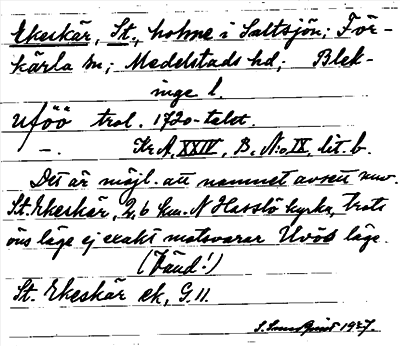 Ekeskär, St., holme i Saltsjön; För-
kärla sn; Medelstads hd; Blek-
inge l.
Uföö trol. 1720-talet.
—. Kr. A, XXIV, B, N:o IX, lit. b.
Det är möjl. att namnet avsett nuv.
St. Ekeskär, 2,6 km. N Hasslö kyrka, trots
öns läge ej exakt motsvarar Uvös läge.
(Vänd!)
St. Ekeskär ek, G. 11.
1927.